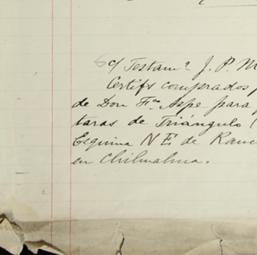 c/ Testamᵃ J. P. M
Certifs comprados p
de Don Fᶜᵒ Aspe para
taras de Triángulo (
Esquina N E. de Ranc
en Chihuahua.